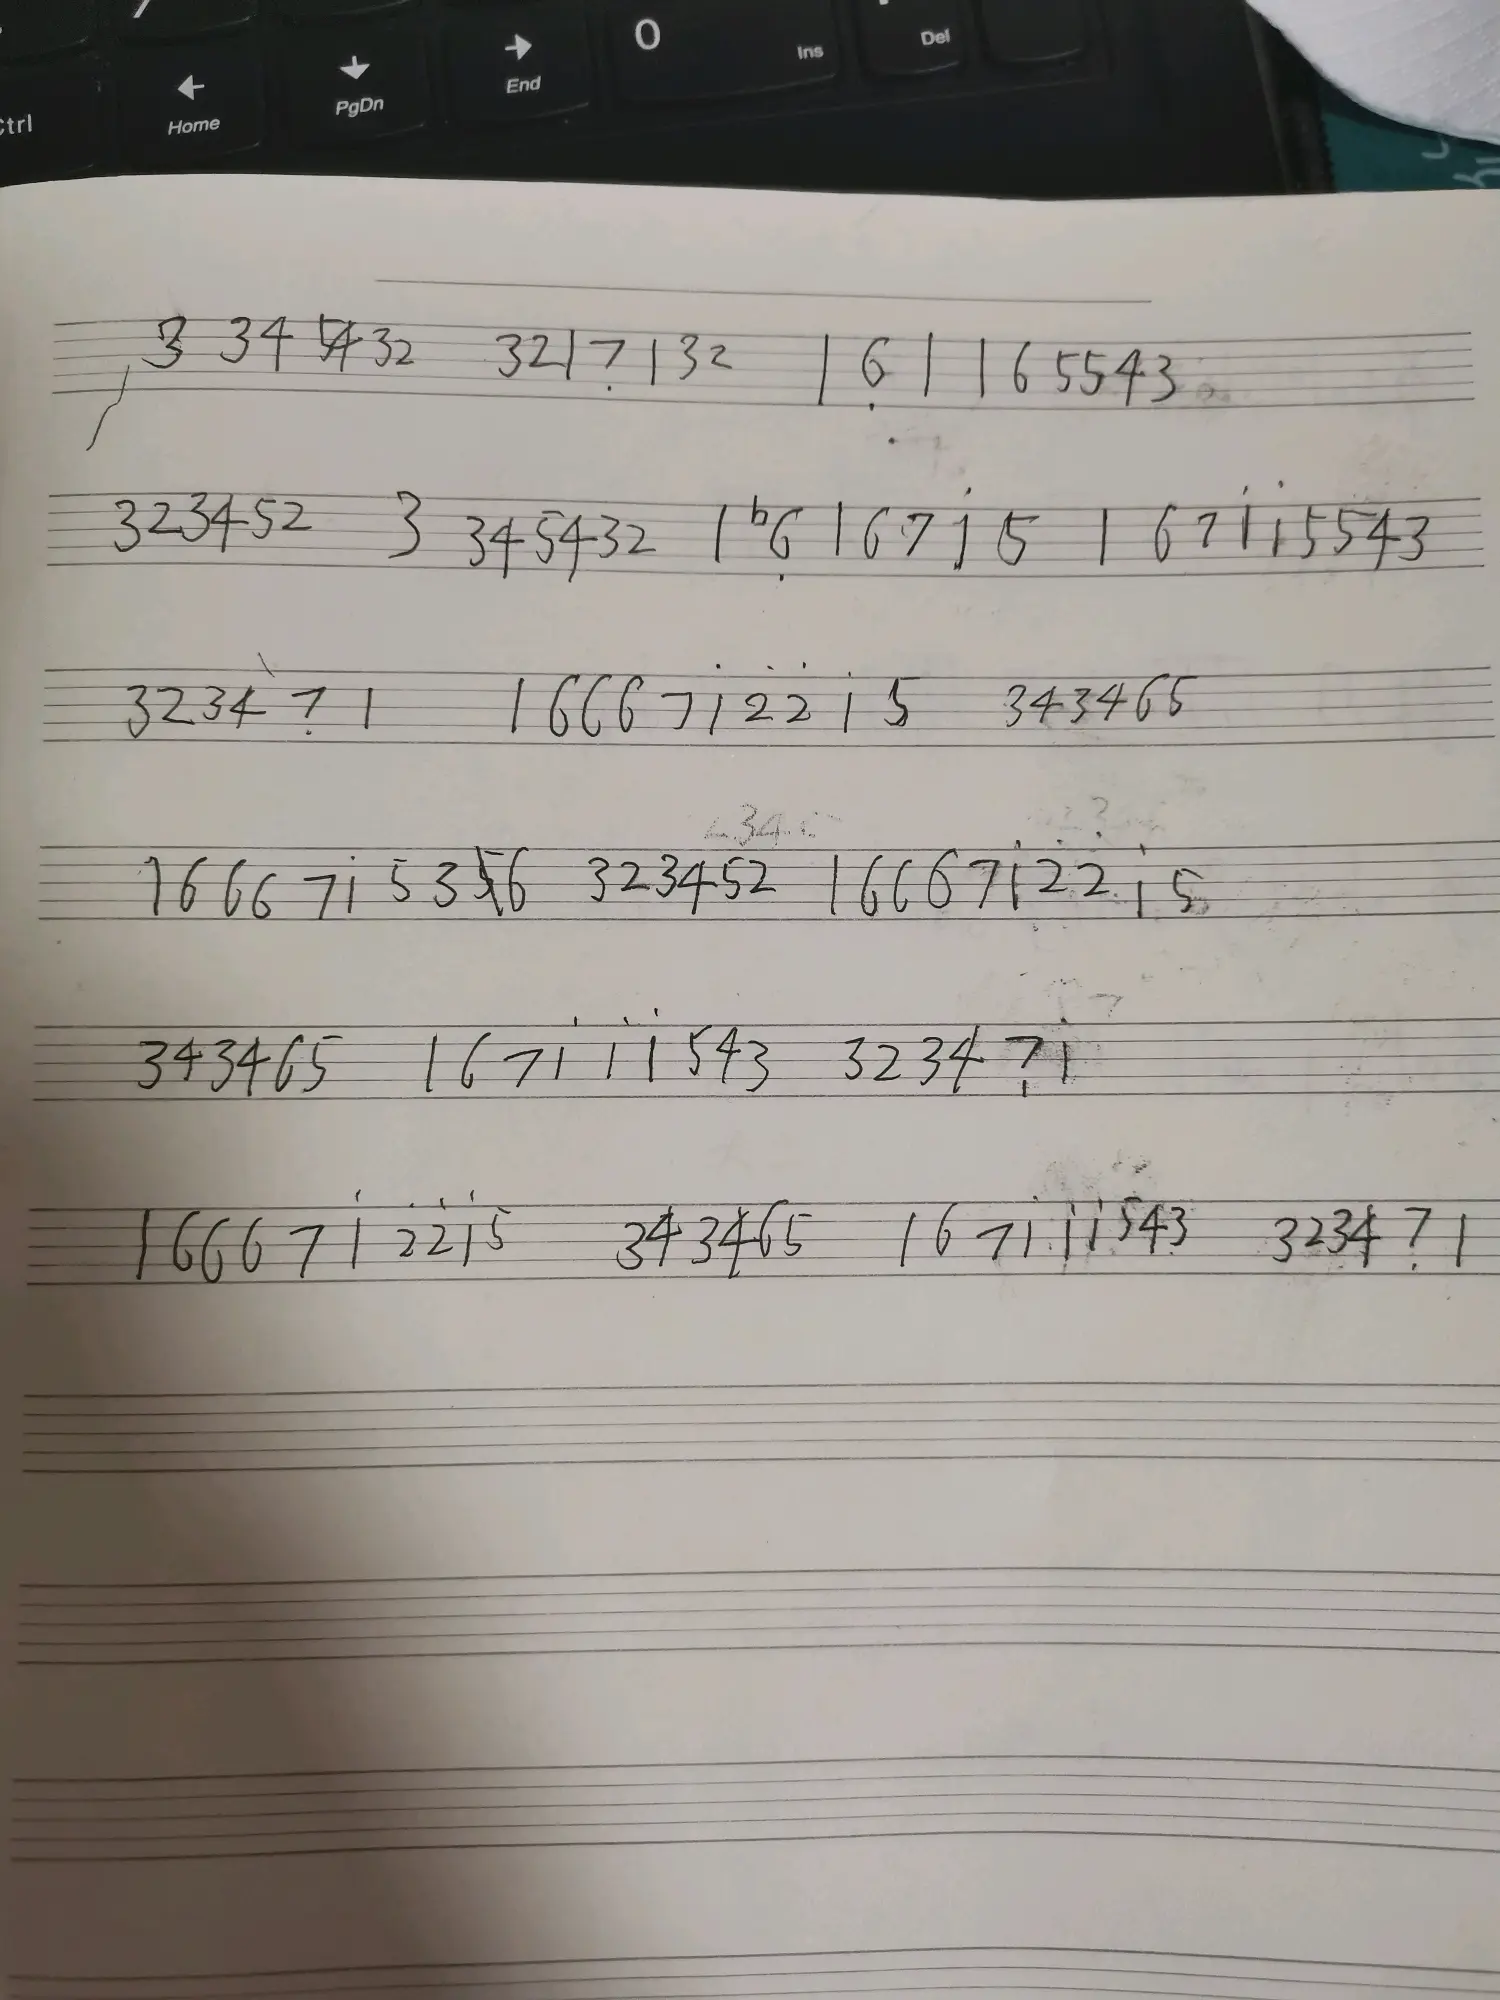 Ctrl ← Home ↓ PgDn → End 0 Ins . Del
3 345432 3217̣132 16̣1 165543
323452 3 345432 1♭6̣167i̇5 167i̇i̇5543
32347̣1 16667i̇2̇2̇i̇5 343465
16667i̇5356 323452 16667i̇2̇2̇i̇5
343465 167i̇i̇i̇543 32347̣i̇
16667i̇2̇2̇i̇5 343465 167i̇i̇i̇543 32347̣1